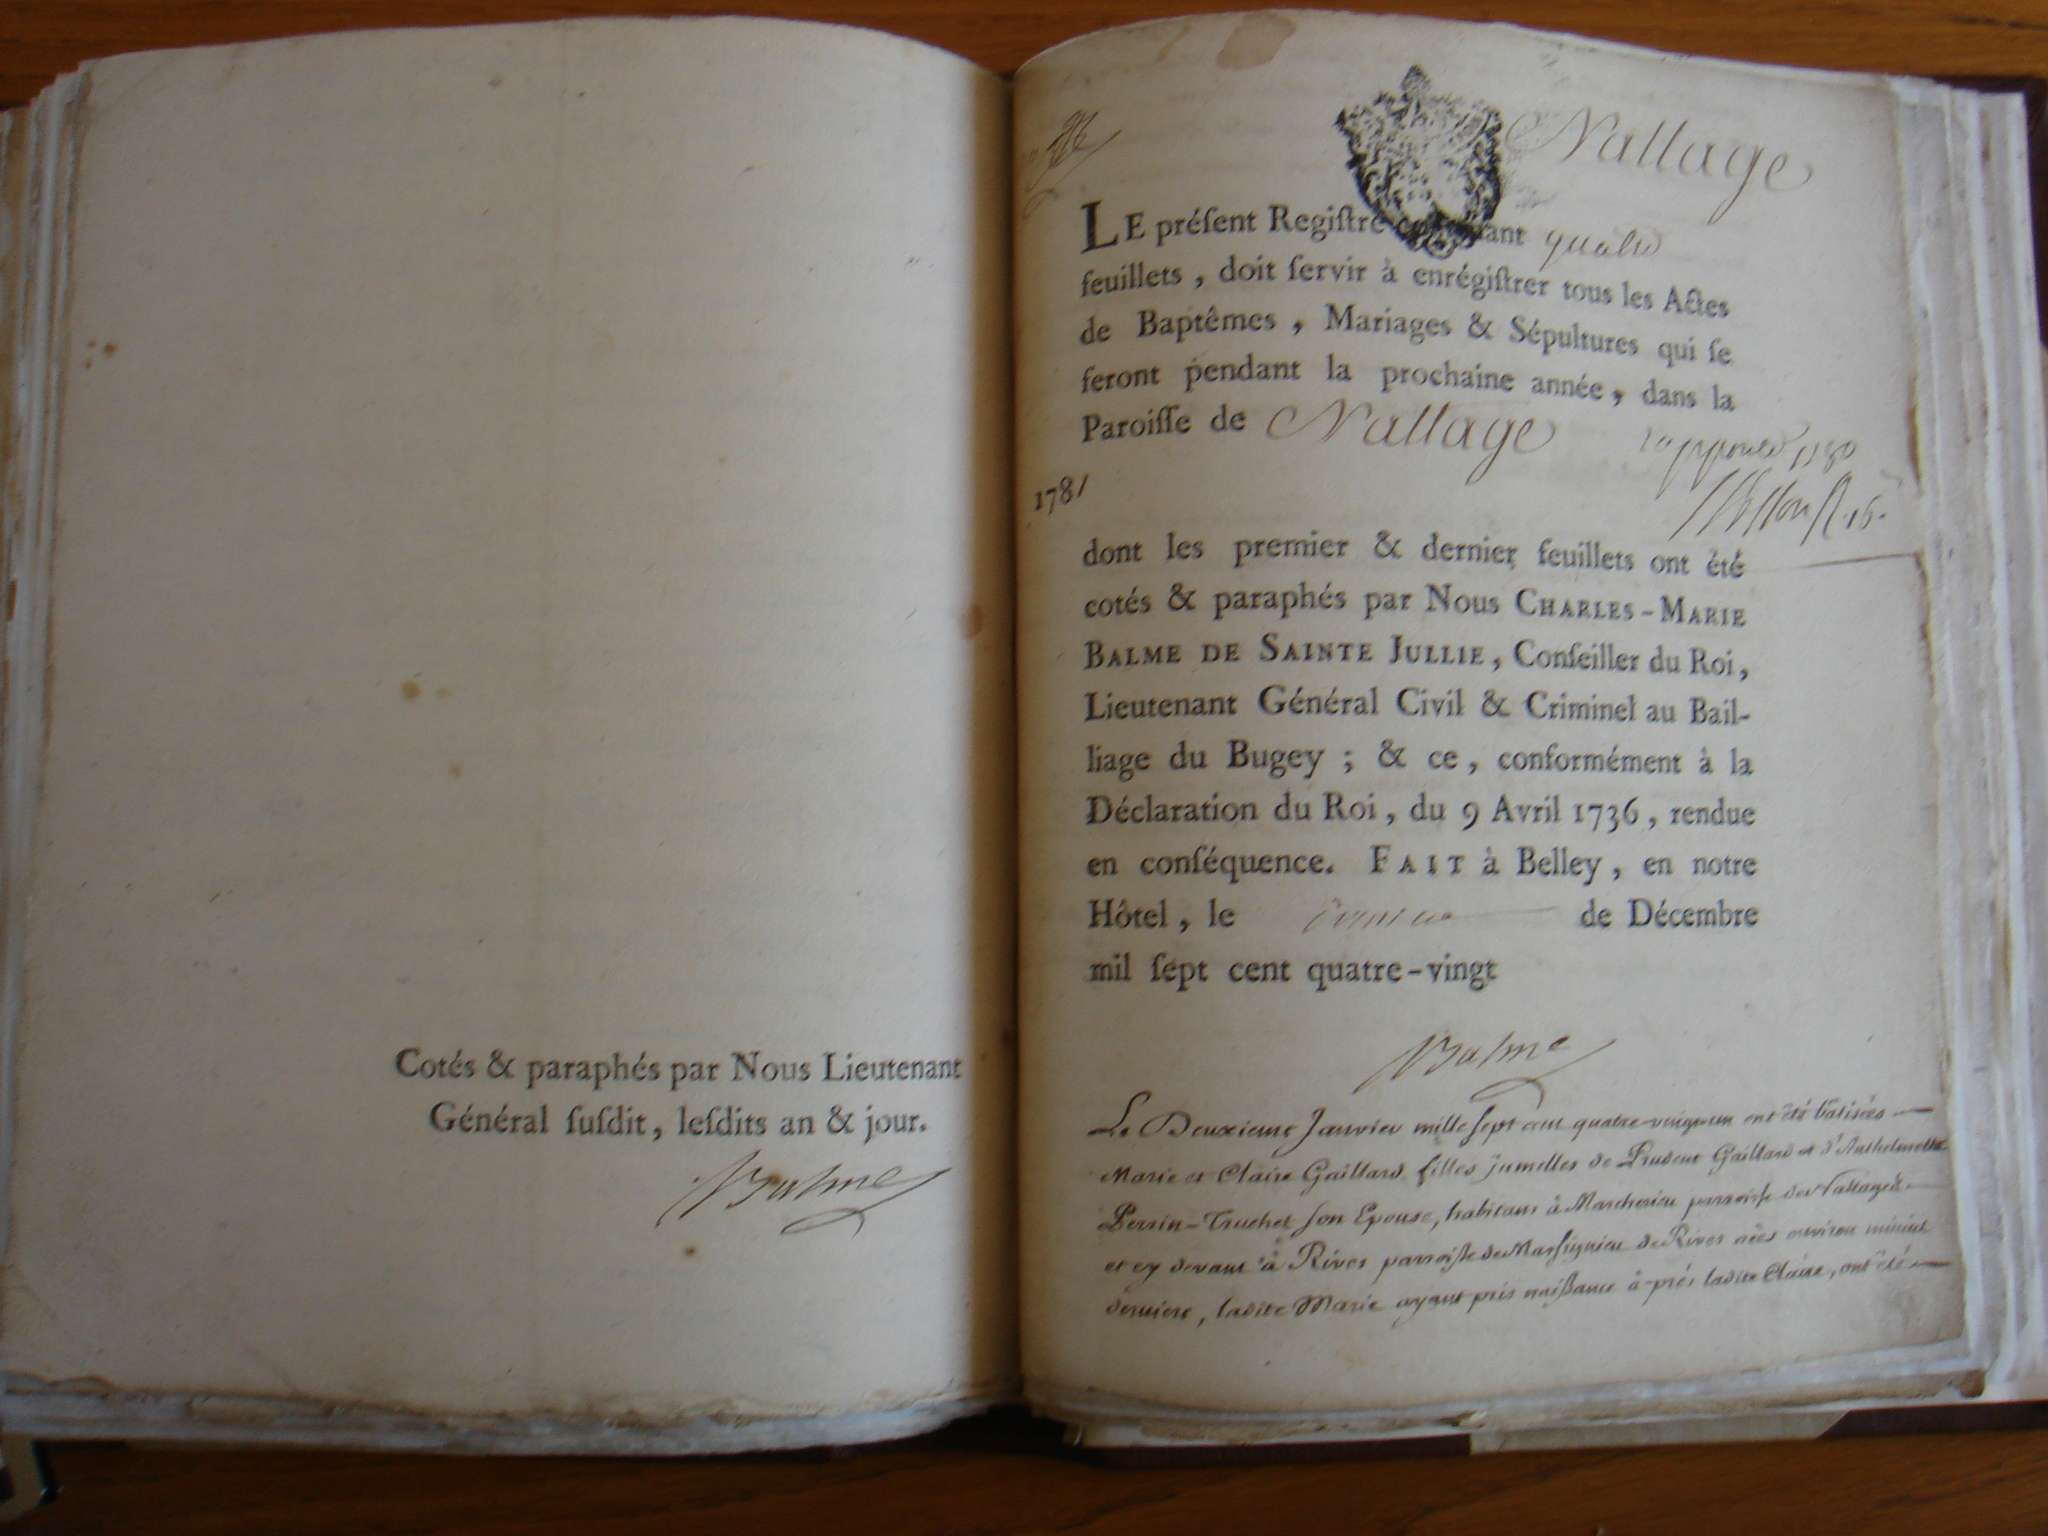 Cotés & paraphés par Nous Lieutenant
Général ſuſdit, leſdits an & jour.
Balme
Nattage
LE préſent Regiſtre ant quatre
feuillets, doit ſervir à enrégiſtrer tous les Actes
de Baptêmes, Mariages & Sépultures qui ſe
feront pendant la prochaine année, dans la
Paroiſſe de Nattage
1781
dont les premier & dernier feuillets ont été
cotés & paraphés par Nous CHARLES-MARIE
BALME DE SAINTE JULLIE, Conſeiller du Roi,
Lieutenant Général Civil & Criminel au Bail-
liage du Bugey ; & ce, conformément à la
Déclaration du Roi, du 9 Avril 1736, rendue
en conſéquence. FAIT à Belley, en notre
Hôtel, le de Décembre
mil ſept cent quatre-vingt
Balme
Le Deuxieme Janvier mille sept cent quatre-vingt-un ont été batisées
Marie et Claire Gaillard filles jumelles de Prudent Gaillard et d'Anthelmette
Perrin-Truchet son Epouse, habitans à parroisse de Nattages
et cy devant à Rives parroisse de Massignieu de Rives nées environ minuit
derniere, ladite Marie ayant pris naissance à-prés ladite Claire, ont été